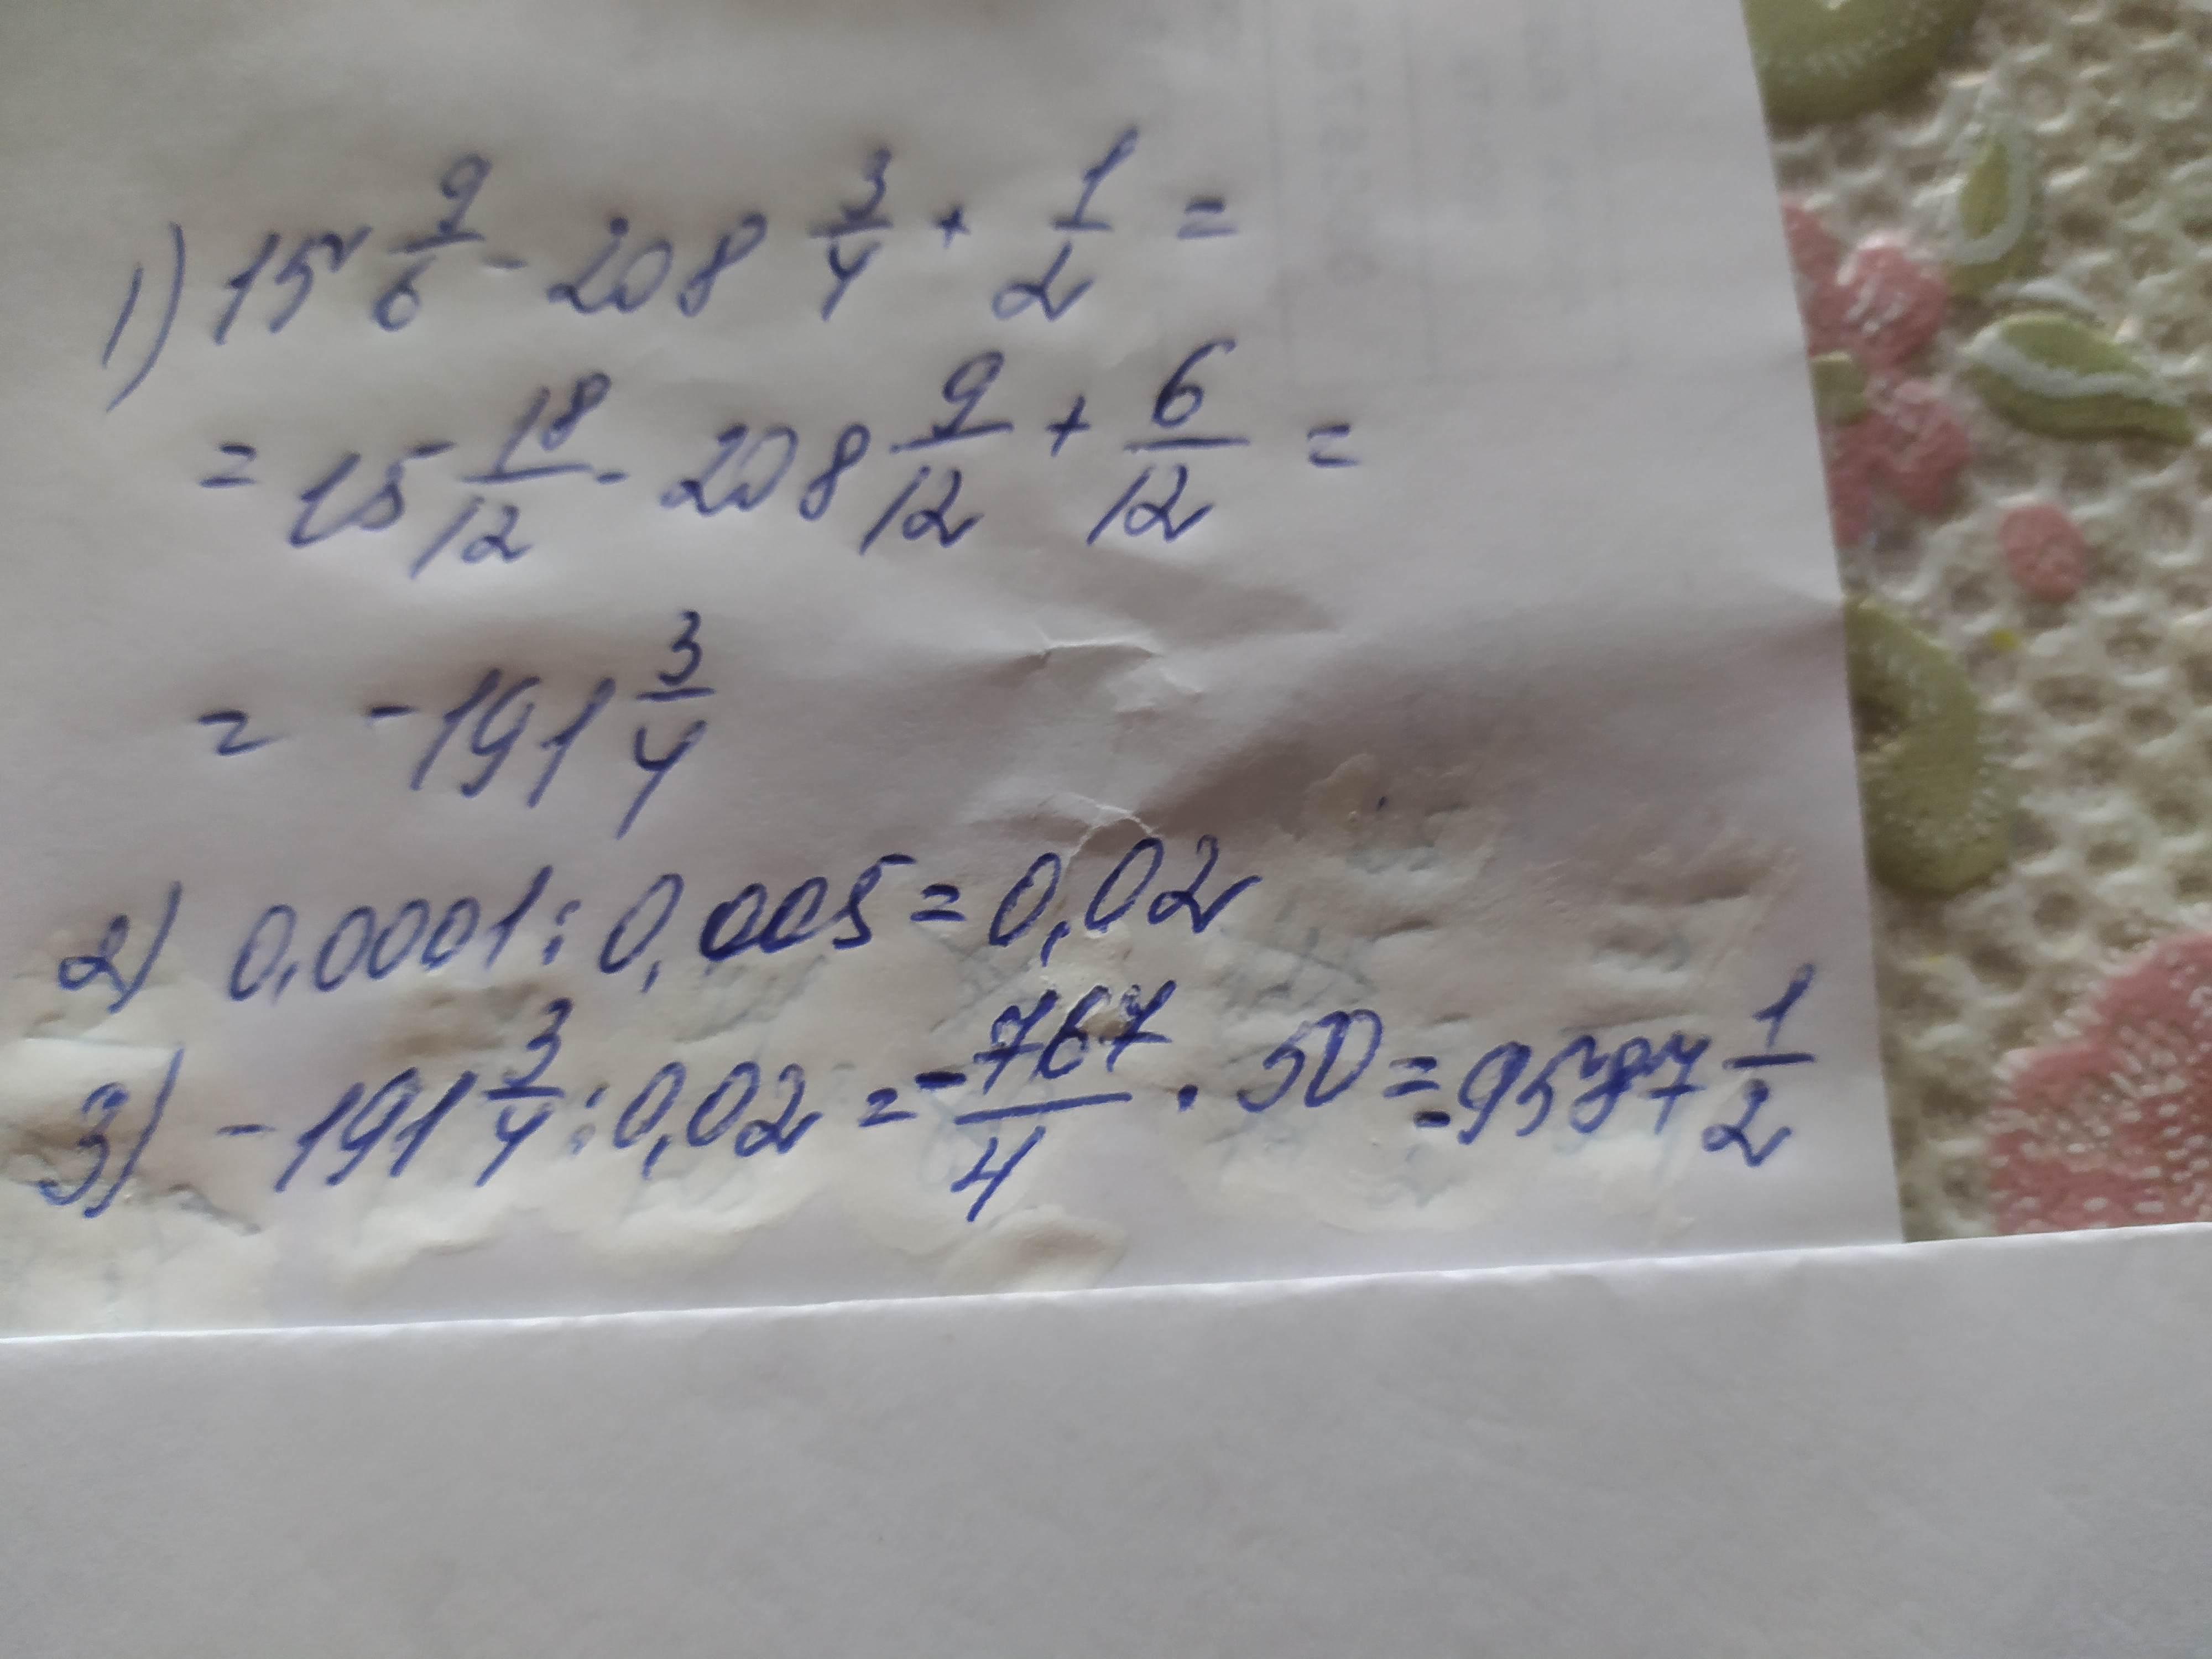 1) 15 9/6 - 208 3/4 + 1/2 =
= 15 18/12 - 208 9/12 + 6/12 =
= -191 3/4
2) 0,0001 : 0,005 = 0,02
3) -191 3/4 : 0,02 = -767/4 · 50 = -9587 1/2